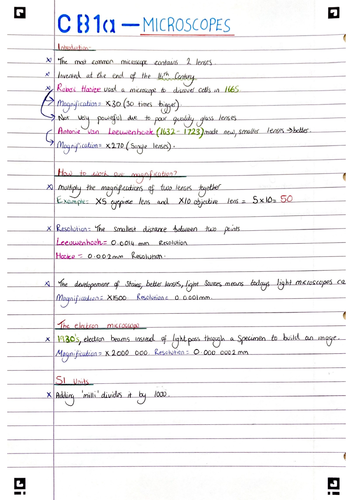 CB1a — MICROSCOPES
Introduction:-
x The most common microscope contains 2 lenses.
x Invented at the end of the 16th Century.
x Robert Hooke used a microscope to discover cells in 1665
Magnification= x30 (30 times bigger)
Not very powerful due to poor quality glass lenses
Antonie van Leeuwenhoek (1632-1723) made new, smaller lenses → better.
Magnification= x270 (Single lenses).
How to work out magnification?
x Multiply the magnifications of two lenses together
Example: X5 eyepiece lens and X10 objective lens = 5x10=50
x Resolution: The smallest distance between two points
Leeuwenhoek= 0.0014mm Resolution
Hooke = 0.002mm Resolution.
x The development of Stains, better lenses, light Sources means todays light microscopes ca
Magnification= x1500 Resolution= 0.0001mm.
The electron microscope
x 1930s, electron beams instead of light pass through a Specimen to build an image.
Magnification= x2000 000. Resolution= 0.000 0002mm
SI Units
x Adding 'milli' divides it by 1000.